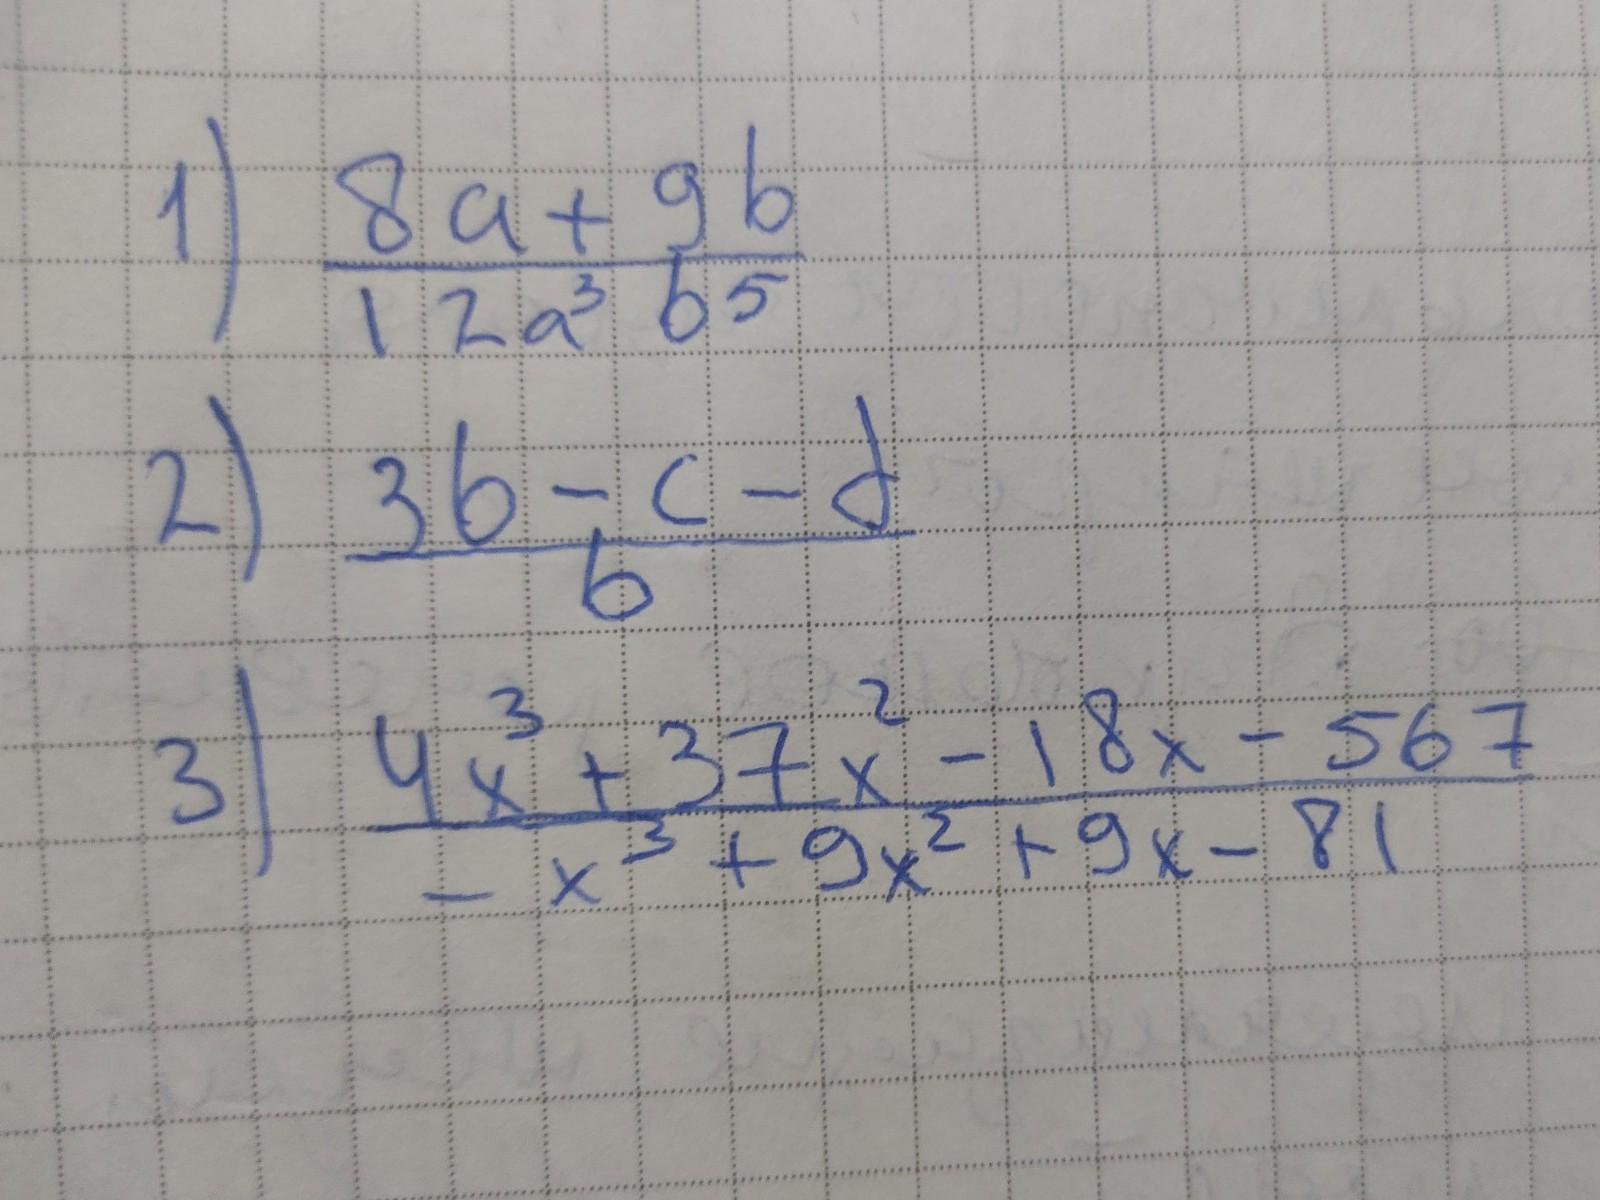 1) 8a + 9b
12a³ b⁵
2) 3b - c - d
b
3) 4x³ + 37x² - 18x - 567
- x³ + 9x² + 9x - 81